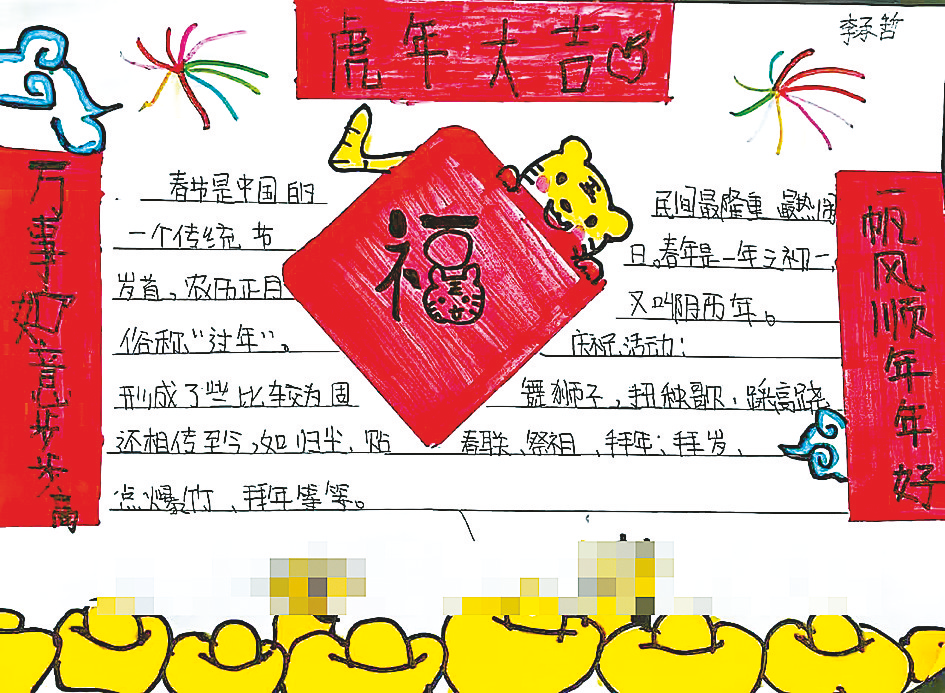 虎年大吉
李承哲
万事如意步步高
福
一帆风顺年年好
春节是中国的 民间最隆重 最热闹
一个传统 节 日。春年是一年之初一,
岁首。农历正月 又叫阴历年。
俗称“过年”。 庆祝活动:
形成了些比较为固 舞狮子,扭秧歌,踩高跷,
还相传至今,如 贴 春联、祭祖、拜年、拜岁、
点爆竹、拜年等等。